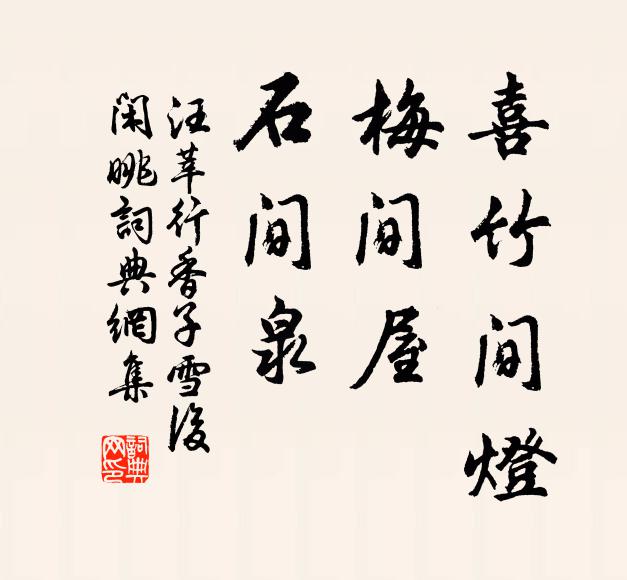 喜竹间燈
梅间屋
石间泉
汪莘行香子雪後
闲眺詞典網集
詞典网印